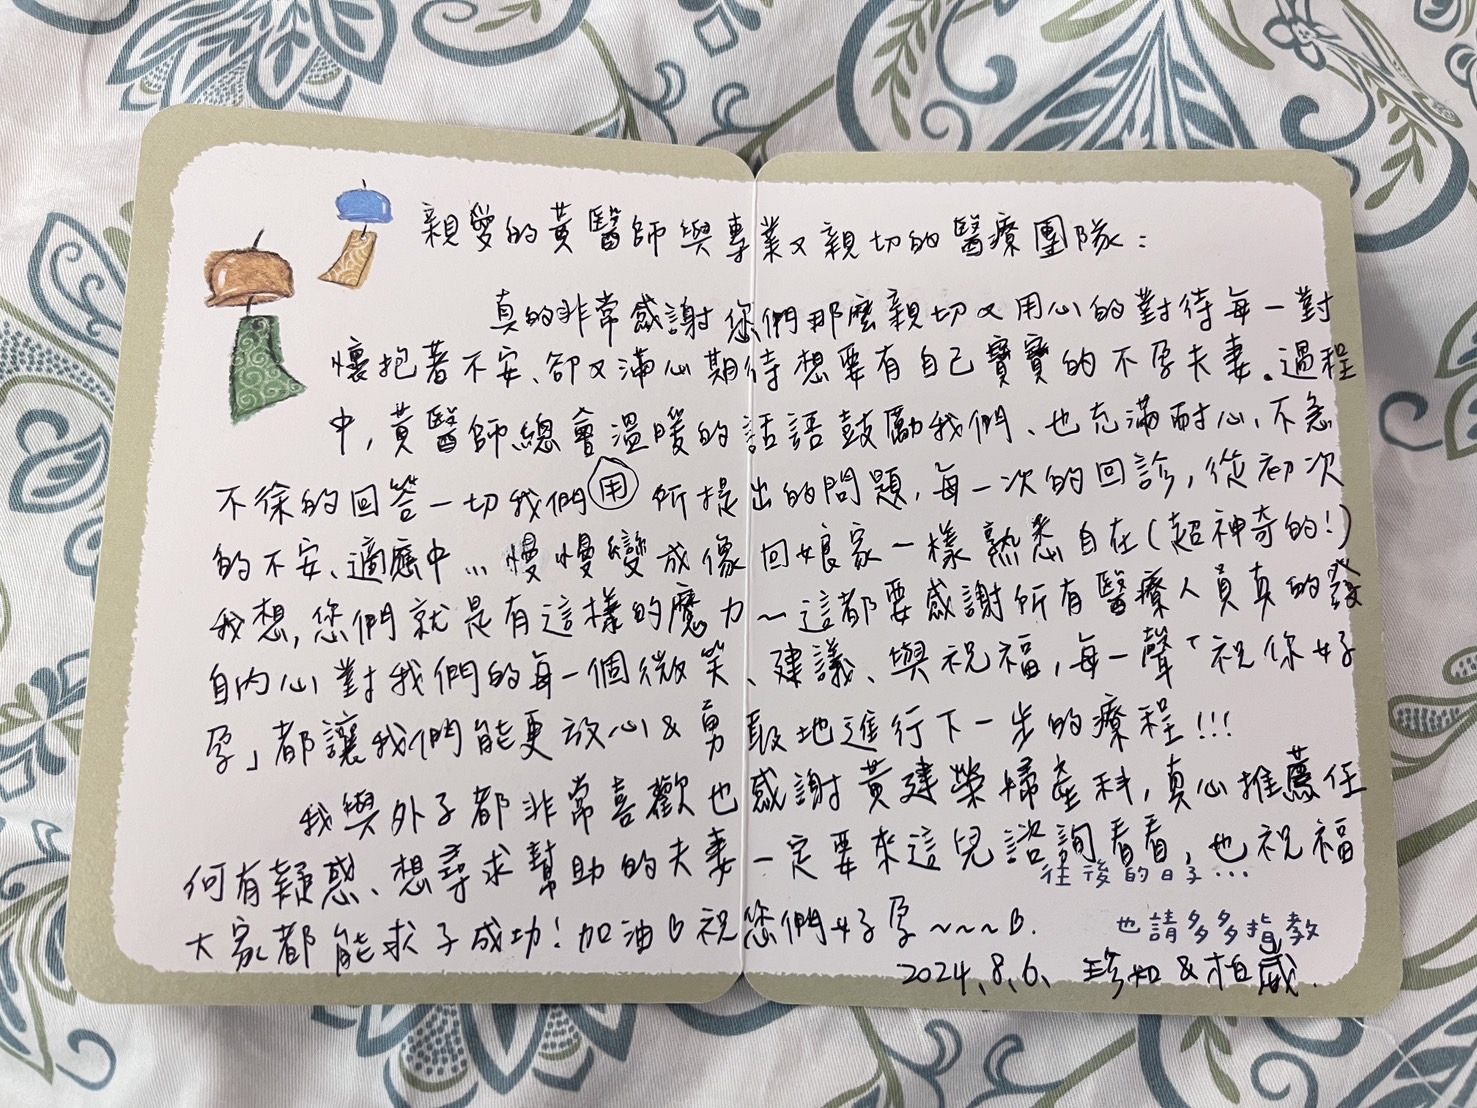 親愛的黃醫師與專業又親切的醫療團隊：
真的非常感謝您們那麼親切又用心的對待每一對
懷抱著不安、卻又滿心期待想要有自己寶寶的不孕夫妻。過程
中，黃醫師總會溫暖的話語鼓勵我們、也充滿耐心、不急
不徐的回答一切我們用所提出的問題，每一次的回診，從初次
的不安、適應中...慢慢變成像回娘家一樣熟悉自在(超神奇的!)
我想，您們就是有這樣的魔力~這都要感謝所有醫療人員真的發
自內心對我們的每一個微笑、建議、與祝福，每一聲「祝你好
孕」都讓我們能更放心&勇敢地進行下一步的療程!!!
我與外子都非常喜歡也感謝黃建榮婦產科，真心推薦任
何有疑惑、想尋求幫助的夫妻一定要來這兒諮詢看看，也祝福
往後的日子...
大家都能求子成功!加油 祝您們好孕~~~
也請多多指教
2024、8、6、 珍如&柏威.